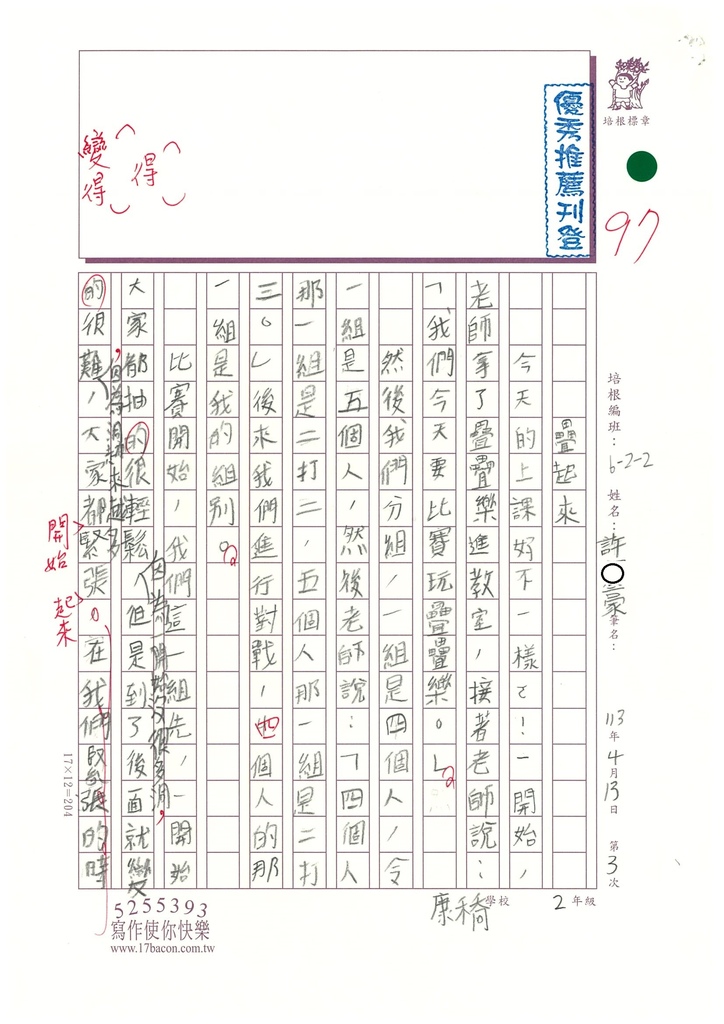 培根標章
優秀推薦刊登
97
變得
得
培根編班：6-2-2 姓名：許 豪 筆名：
113年4月13日 第3次
2年級
康橋 學校
疊起來
今天的上課好不一樣ㄛ！一開始，
老師拿了疊疊樂進教室，接著老師說：
「我們今天要比賽玩疊疊樂。」
然後我們分組，一組是四個人，令
一組是五個人，然後老師說：「四個人
那一組是二打三，五個人那一組是二打
三。」後來我們進行對戰，四個人的那
一組是我的組別。
比賽開始，我們這一組先，一開始
因為一開始沒很多洞，
大家都抽的很輕鬆，但是到了後面就變
因為洞越來越多
的很難，大家都緊張。在我們緊張的時
開始
起來
17×12=204
5255393
寫作使你快樂
www.17bacon.com.tw